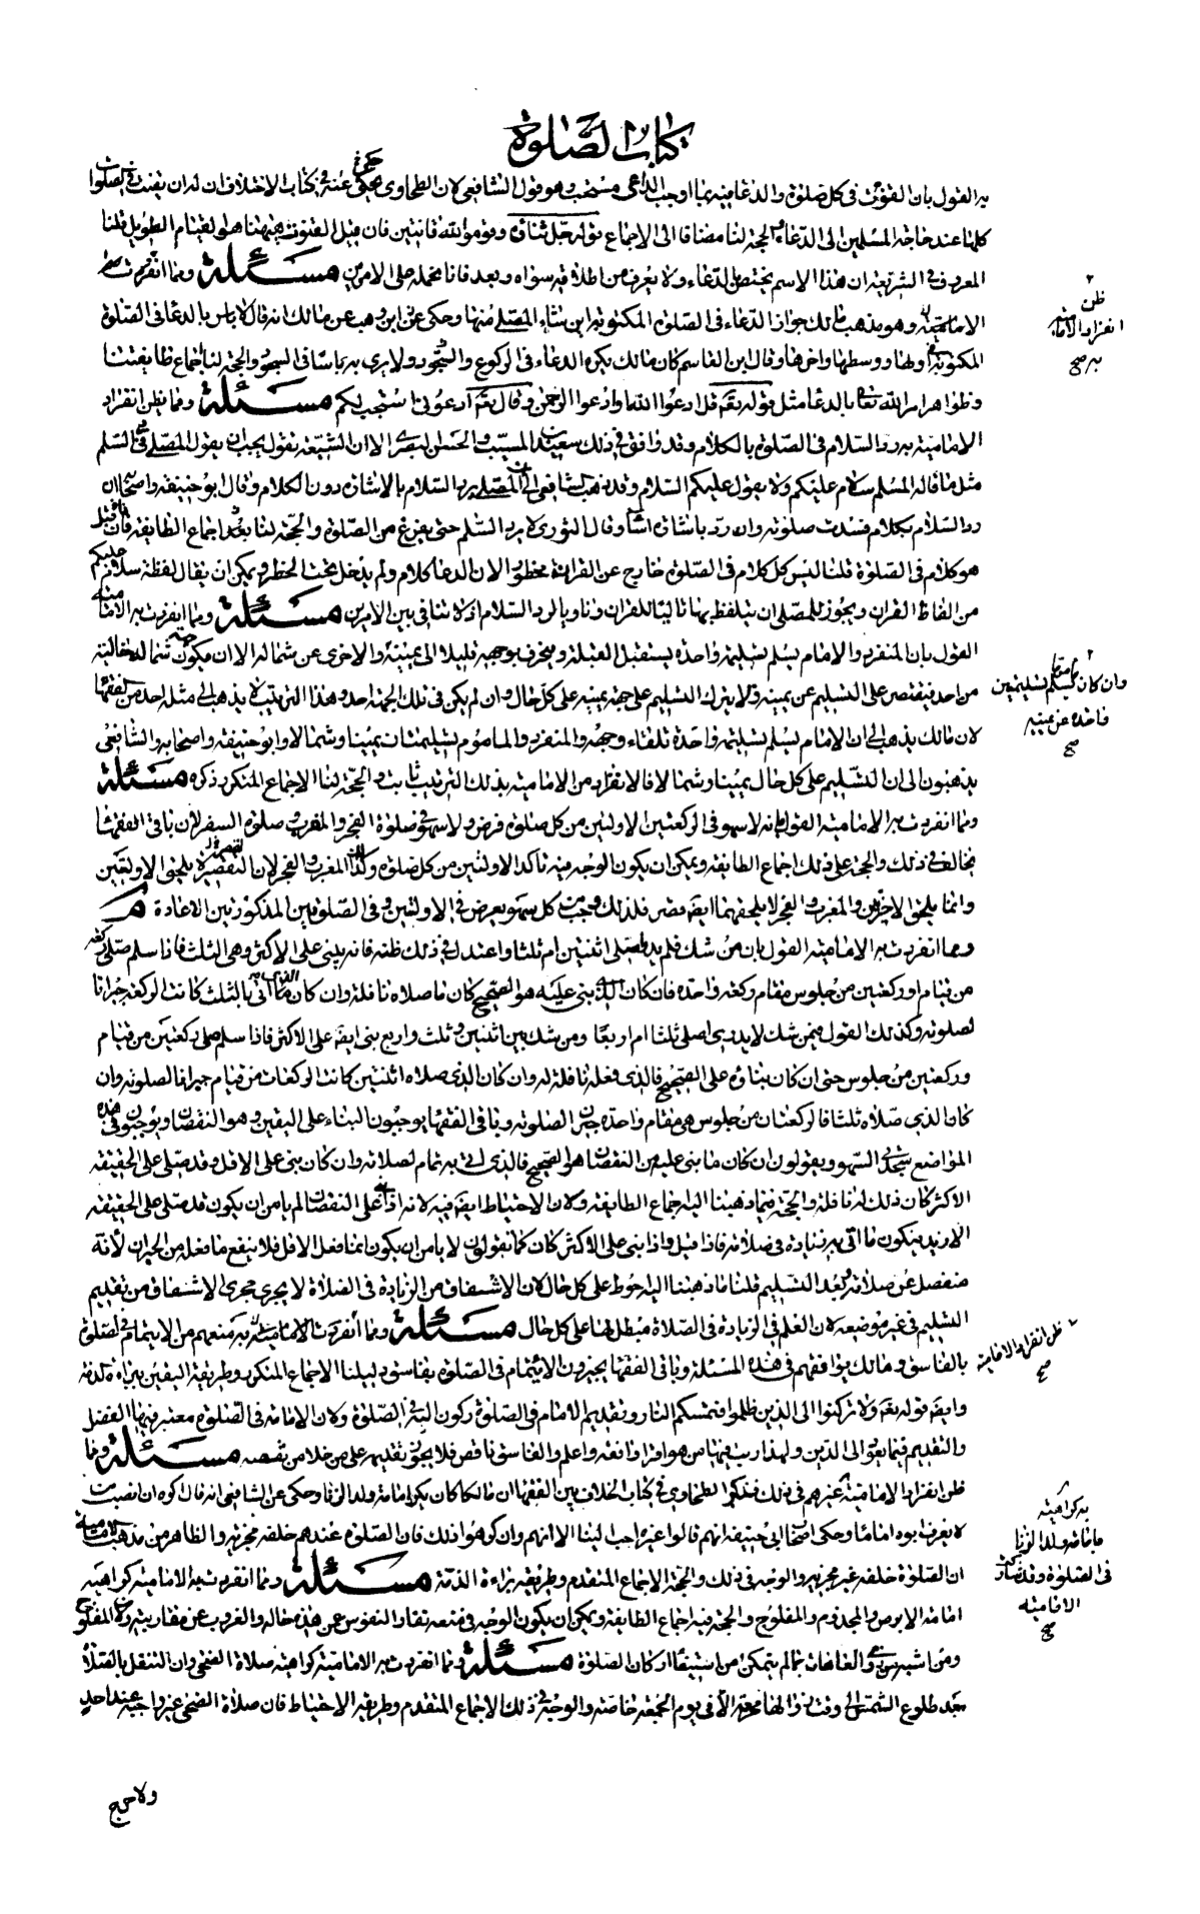 كتاب الصلوة
به القول بان القنوت فى كل صلوة والدعا فيه بما احب الداعى مستحب وهو قول الشافعى لان الطحاوى حكى عنه فى كتاب الاختلاف ان له ان يقنت فى الصلوات
كلها عند حاجة المسلمين الى الدعاء والحجة لنا مضافا الى الاجماع قوله جل ثناؤه وقوموا لله قانتين فان قيل القنوت هيهنا هو القيام الطويل قلنا
المعروف فى الشريعة ان هذا الاسم يختص الدعاء ولا يعرف من اطلاقه سواه وبعد فانا نحمله على الامرين مسئلة ومما انفردت
الامامية به وهو مذهب مالك جواز الدعاء فى الصلوة المكتوبة اين شاء المصلى منها وحكى عن ابن وهب عن مالك انه قال لا باس بالدعا فى الصلوة
المكتوبة فى اولها ووسطها واخرها وقال ابن القاسم كان مالك يكره الدعاء فى الركوع ولا يرى به باسا فى السجود والحجة لنا اجماع طايفتنا
وظواهر امر الله تعالى بالدعا مثل قوله تعه قل ادعوا الله او ادعوا الرحمن وقال تعه ادعونى استجب لكم مسئلة ومما يظن انفراد
الامامية به رد السلام فى الصلوة بالكلام وقد وافق فى ذلك سعيد بن المسيب والحسن البصرى الا ان الشيعة تقول يجب ان يقول المصلى فى رد السلام
مثل ما قاله المسلم سلام عليكم ولا يقول عليكم السلام وقد ذهب الشافعى الى ان المصلى يرد السلام بالاشارة دون الكلام وقال ابو حنيفة واصحابه ان
رد السلام بكلام فسدت صلوته وان رد باشارة اساء وقال الثورى لا يرد السلم حتى يفرغ من الصلوة والحجة لنا بعد اجماع الطايفة فان قيل
هو كلام فى الصلوة قلنا ليس كل كلام فى الصلوة خارج عن القرائة محظور الا ان الدعا كلام ولم يدخل تحت الحظر ويمكن ان يقال لفظة سلام عليكم
من الفاظ القران ويجوز للمصلى ان يتلفظ بها تاليا للقران وناويا لرد السلام اذ لا تنافى بين الامرين مسئلة ومما انفردت به الامامية
القول بان المنفرد والامام يسلم تسليمة واحدة يستقبل القبلة وينحرف بوجهه قليلا الى يمينه والاخرى عن شماله الا ان يكون جهة شماله خالية
من احد فيقتصر على التسليم عن يمينه ولا يترك التسليم على جهة يمينه على كل حال وان لم يكن فى تلك الجهة احد وهذا الترتيب لا يذهب الى مثله احد من الفقها
لان مالك يذهب الى ان الامام يسلم تسليمة واحدة تلقاء وجهه والمنفرد والماموم يسلم تسليمتان يمينا وشمالا وابو حنيفة واصحابه والشافعى
يذهبون الى ان التسليم على كل حال يمينا وشمالا فالانفراد من الامامية بذلك الترتيب ثابت والحجة لنا الاجماع المتكرر ذكره مسئلة
ومما انفردت به الامامية القول بانه لا سهو فى الركعتين الاولتين من كل صلوة فرض ولا سهو فى صلوة الفجر والمغرب وصلوة السفر لان باقى الفقها
يخالف فى ذلك والحجة على ذلك اجماع الطايفة ويمكن ان يكون الوجه فيه تاكد الاولتين من كل صلوة وكذا المغرب والفجر لان التقصير يلحق الاولتين
وانما يلحق الاخرتين والمغرب والفجر لا يلحقهما ايضه قصر فلذلك وجبت كل سهو يعرض فى الاولتين وفى الصلوتين المذكورتين الاعادة
ومما انفردت به الامامية القول بان من شك فلم يدر اصلى اثنتين ام ثلثا واعتدل فى ذلك ظنه فانه يبنى على الاكثر وهى الثلث فاذا سلم صلى ركعة
من قيام او ركعتين من جلوس مقام ركعة واحدة فان كان الذى بنى عليه هو الصحيح كان ما صلاه نافلة وان كان ما اتى بالثلث كانت الركعة جبرانا
لصلوته وكذلك القول فيمن شك لا يدرى اصلى ثلثا ام اربعا ومن شك بين اثنتين وثلث واربع بنى ايضه على الاكثر فاذا سلم صلى ركعتين من قيام
وركعتين من جلوس حتى ان كان بناؤه على الصحيح فالذى فعله نافلة له وان كان الذى صلاه اثنتين كانت الركعات من قيام جبرانا لصلوته وان
كان الذى صلاه ثلثا فالركعتان من جلوس هى مقام واحدة جبران الصلوته وباقى الفقها يوجبون البناء على اليقين وهو النقصان ويوجبون فى هذه
المواضع سجدتى السهو ويقولون ان كان ما بنى عليه من النقصان هو الصحيح فالذى اتى به تمام لصلاته وان كان بنى على الاقل وقد صلى على الحقيقة
الاكثر كان ذلك له نافلة والحجة فيما ذهبنا اليه اجماع الطايفة ولان الاحتياط ايضه فيه لانه اذا بنى على النقصان لم يامن ان يكون قد صلى على الحقيقة
الازيد فيكون ما اتى به زيادة فى صلاته فاذا قيل واذا بنى على الاكثر كان كما تقولون لا يامن ان يكون انما فعل الاقل فلا ينفع ما فعله من الجبران لانه
منفصل عن صلاته وبعد التسليم قلنا ما ذهبنا اليه احوط على كل حال لان الاشفاق من الزيادة فى الصلاة لا يجرى مجرى الاشفاق من تقديم
التسليم فى غير موضعه لان العلم فى الزيادة فى الصلاة مبطل لها على كل حال مسئلة ومما انفردت الامامية به منعهم من الايتمام فى الصلوة
بالفاسق ومالك يوافقهم فى هذه المسئلة وباقى الفقها يجيزون الايتمام فى الصلوة بفاسق دليلنا الاجماع المتكرر وطريقة اليقين ببراءة الذمة
وايضه قوله تعه ولا تركنوا الى الذين ظلموا فتمسكم النار وتقديم الامام فى الصلوة ركون اليه فى الصلوة ولان الامامة فى الصلوة معتبر فيها الفضل
والتقديم فيما يعود الى الدين ولهذا رتب فيها من هو اقرا وافقه واعلم والفاسق ناقص فلا يجوز تقديمه على من خلا من نقصه مسئلة ومما
ظن انفراد الامامية غيرهم فى ذلك فذكر الطحاوى فى كتاب الخلاف بين الفقها ان مالكا كان يكره امامة ولد الزنا وحكى عن الشافعى انه قال اكره ان انصب من
لا يعرف ابوه اماما وحكى اصحاب ابى حنيفة انهم قالوا غيره احب الينا الا انهم وان كرهوا ذلك فان الصلوة عندهم خلفه مجزية والظاهر من مذهب الامامية
ان الصلوة خلفه غير مجزية والوجه فى ذلك والحجة الاجماع المتقدم وطريقة براءة الذمة مسئلة ومما انفردت به الامامية كراهية
امامة الابرص والمجذوم والمفلوج والحجة فيه اجماع الطايفة ويمكن ان يكون الوجه فى منعه نفار النفوس عمن هذه حاله والعزوف عن مقاربته ولان المفلوج
ومن اشبهه من ذوى العاهات ربما لم يتمكن من استيفاء اركان الصلوة مسئلة ومما انفردت به الامامية كراهية صلاة الضحى وان التنفل بالصلاة
بعد طلوع الشمس الى وقت زوالها محرمة الا فى يوم الجمعة خاصة والوجه فى ذلك الاجماع المتقدم وطريقة الاحتياط فان صلاة الضحى غير واجبة عند احد
ولا حرج
ظن
انفراد الامامية
به صح
وان كان ماموما يسلم تسليمتين
واحدة عن يمينه
صح
ظن انفراد الامامية
صح
به كراهية
امامة ولد الزنا
فى الصلوة وقد شارك
الامامية
صح